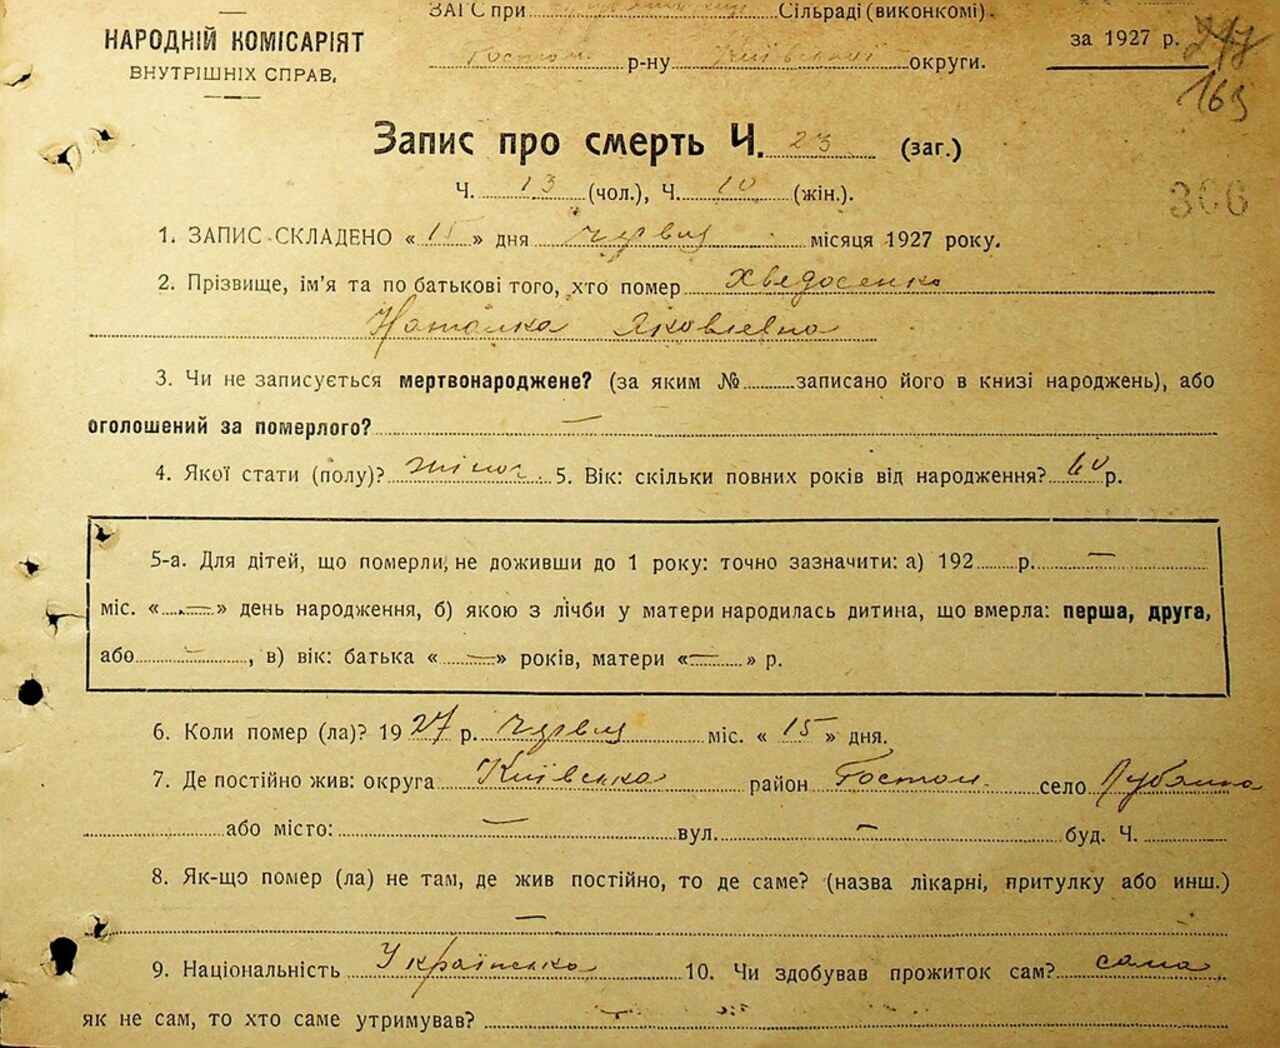 ЗАГС при Сільраді (виконкомі)
НАРОДНІЙ КОМІСАРІЯТ
ВНУТРІШНІХ СПРАВ,
Гостом. р-ну Київської округи.
за 1927 р.
163
Запис про смерть Ч. 23 (заг.)
Ч. 13 (чол.), Ч. 10 (жін.).
366
1. ЗАПИС СКЛАДЕНО « 15 » дня червця місяця 1927 року.
2. Прізвище, ім'я та по батькові того, хто помер Хведосенко
Наталка Яковлевна
3. Чи не записується мертвонароджене? (за яким № записано його в книзі народжень), або
оголошений за померлого? —
4. Якої стати (полу)? жіноч. 5. Вік: скільки повних років від народження? 60 р.
5-а. Для дітей, що померли, не доживши до 1 року: точно зазначити: а) 192 р. —
міс. « — » день народження, б) якою з лічби у матери народилась дитина, що вмерла: перша, друга,
або — , в) вік: батька « — » років, матери « — » р.
6. Коли помер (ла)? 1927 р. червця міс. « 15 » дня.
7. Де постійно жив: округа Київська район Гостом. село Лубянка
або місто: — вул. — буд. Ч.
8. Як-що помер (ла) не там, де жив постійно, то де саме? (назва лікарні, притулку або инш.)
—
9. Національність Українська 10. Чи здобував прожиток сам? сама
як не сам, то хто саме утримував? —